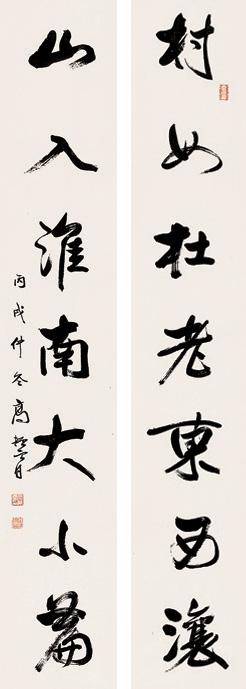 村如杜老東西瀼
山入淮南大小篇
丙戌仲冬高